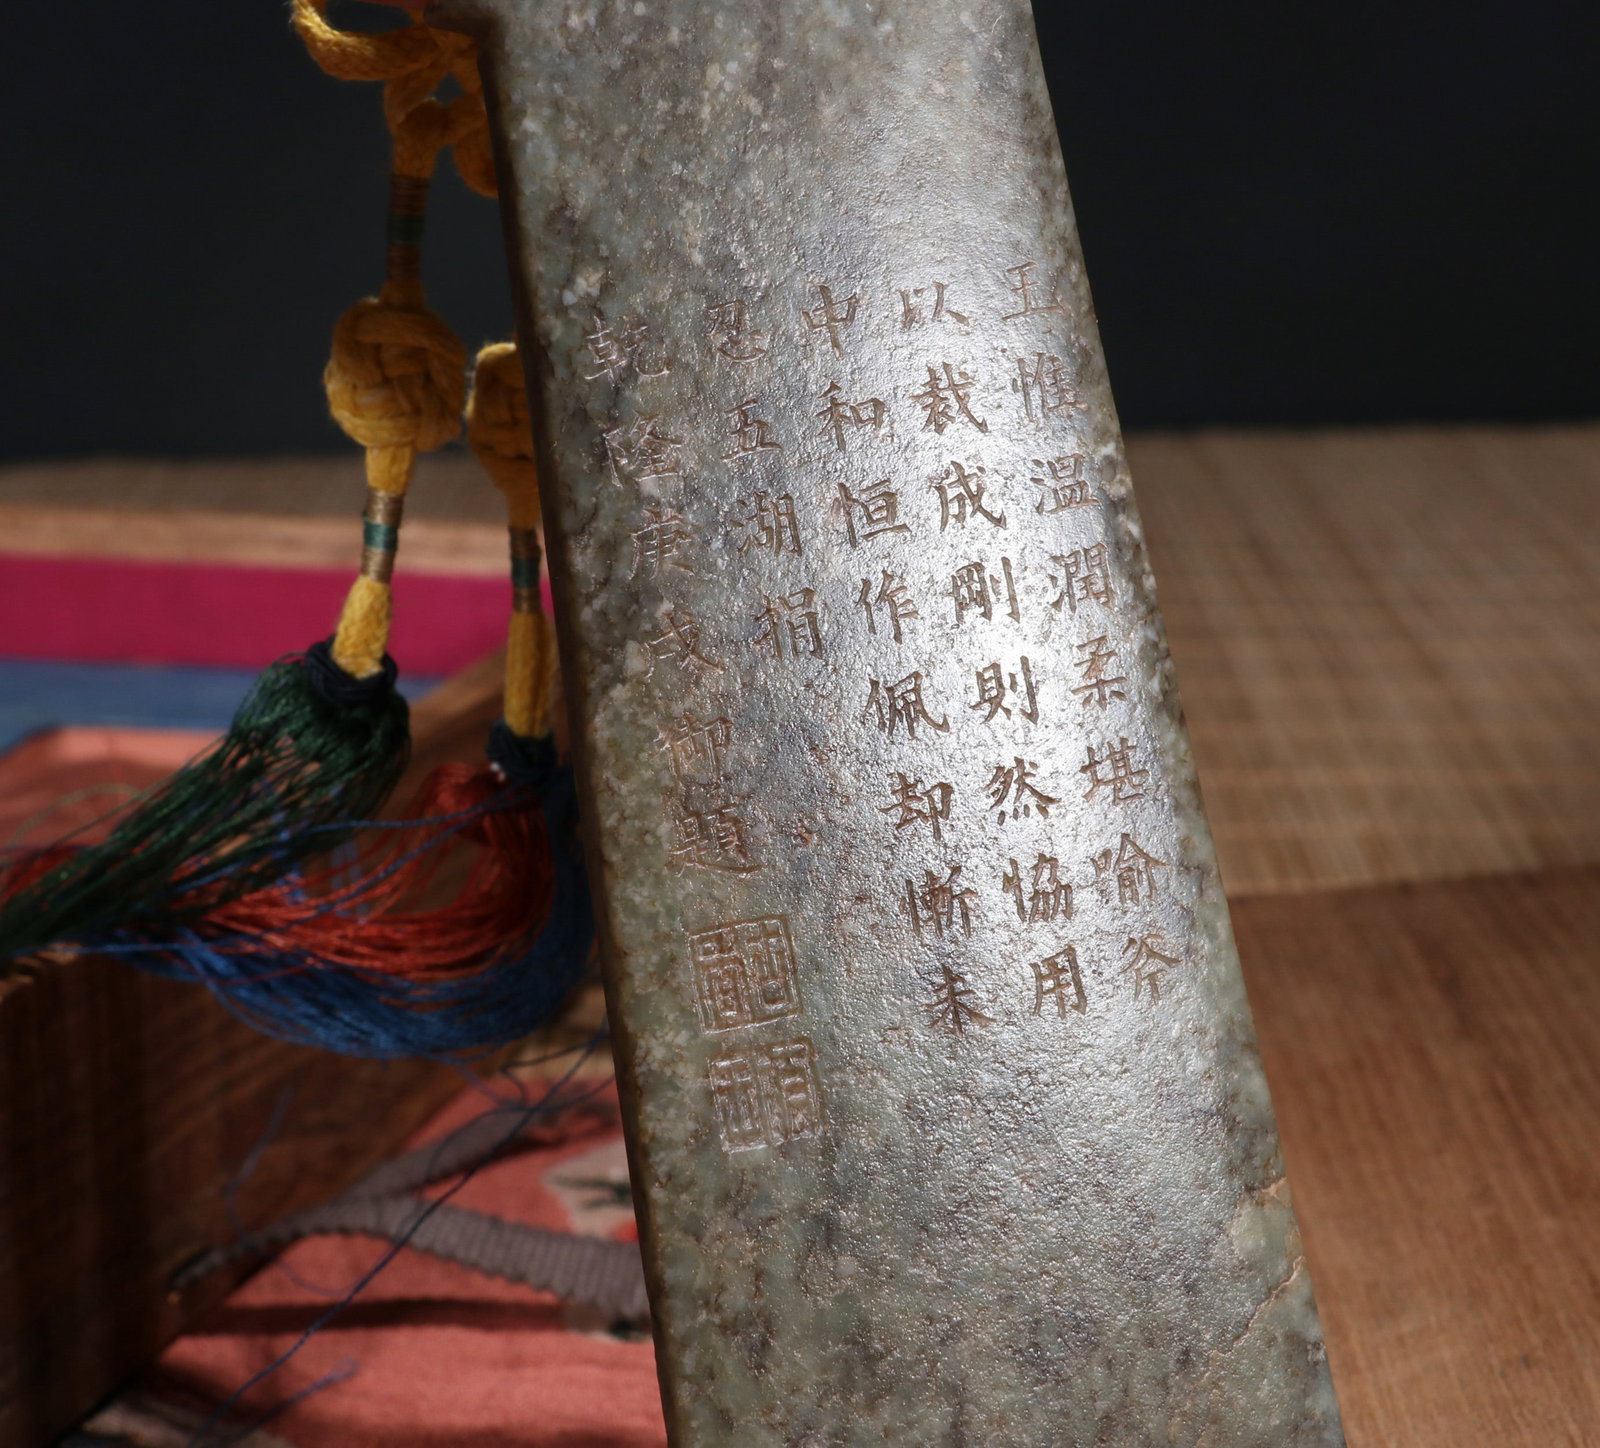 玉惟温潤柔堪喻斧
以裁成剛則然協用
中和恒作佩却慚未
忍五湖捐
乾隆庚戌御題